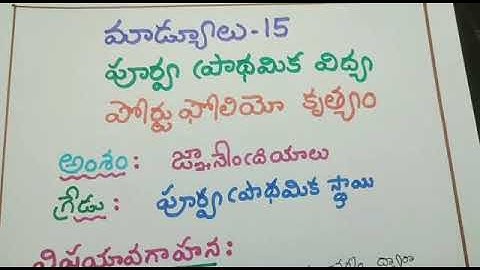 మాడ్యూలు-15
పూర్వ ప్రాథమిక విద్య
పోర్టుఫోలియో కృత్యం
అంశం: జ్ఞానేంద్రియాలు
గ్రేడు: పూర్వ ప్రాథమిక స్థాయి
విషయావగాహన:
ద్వారా